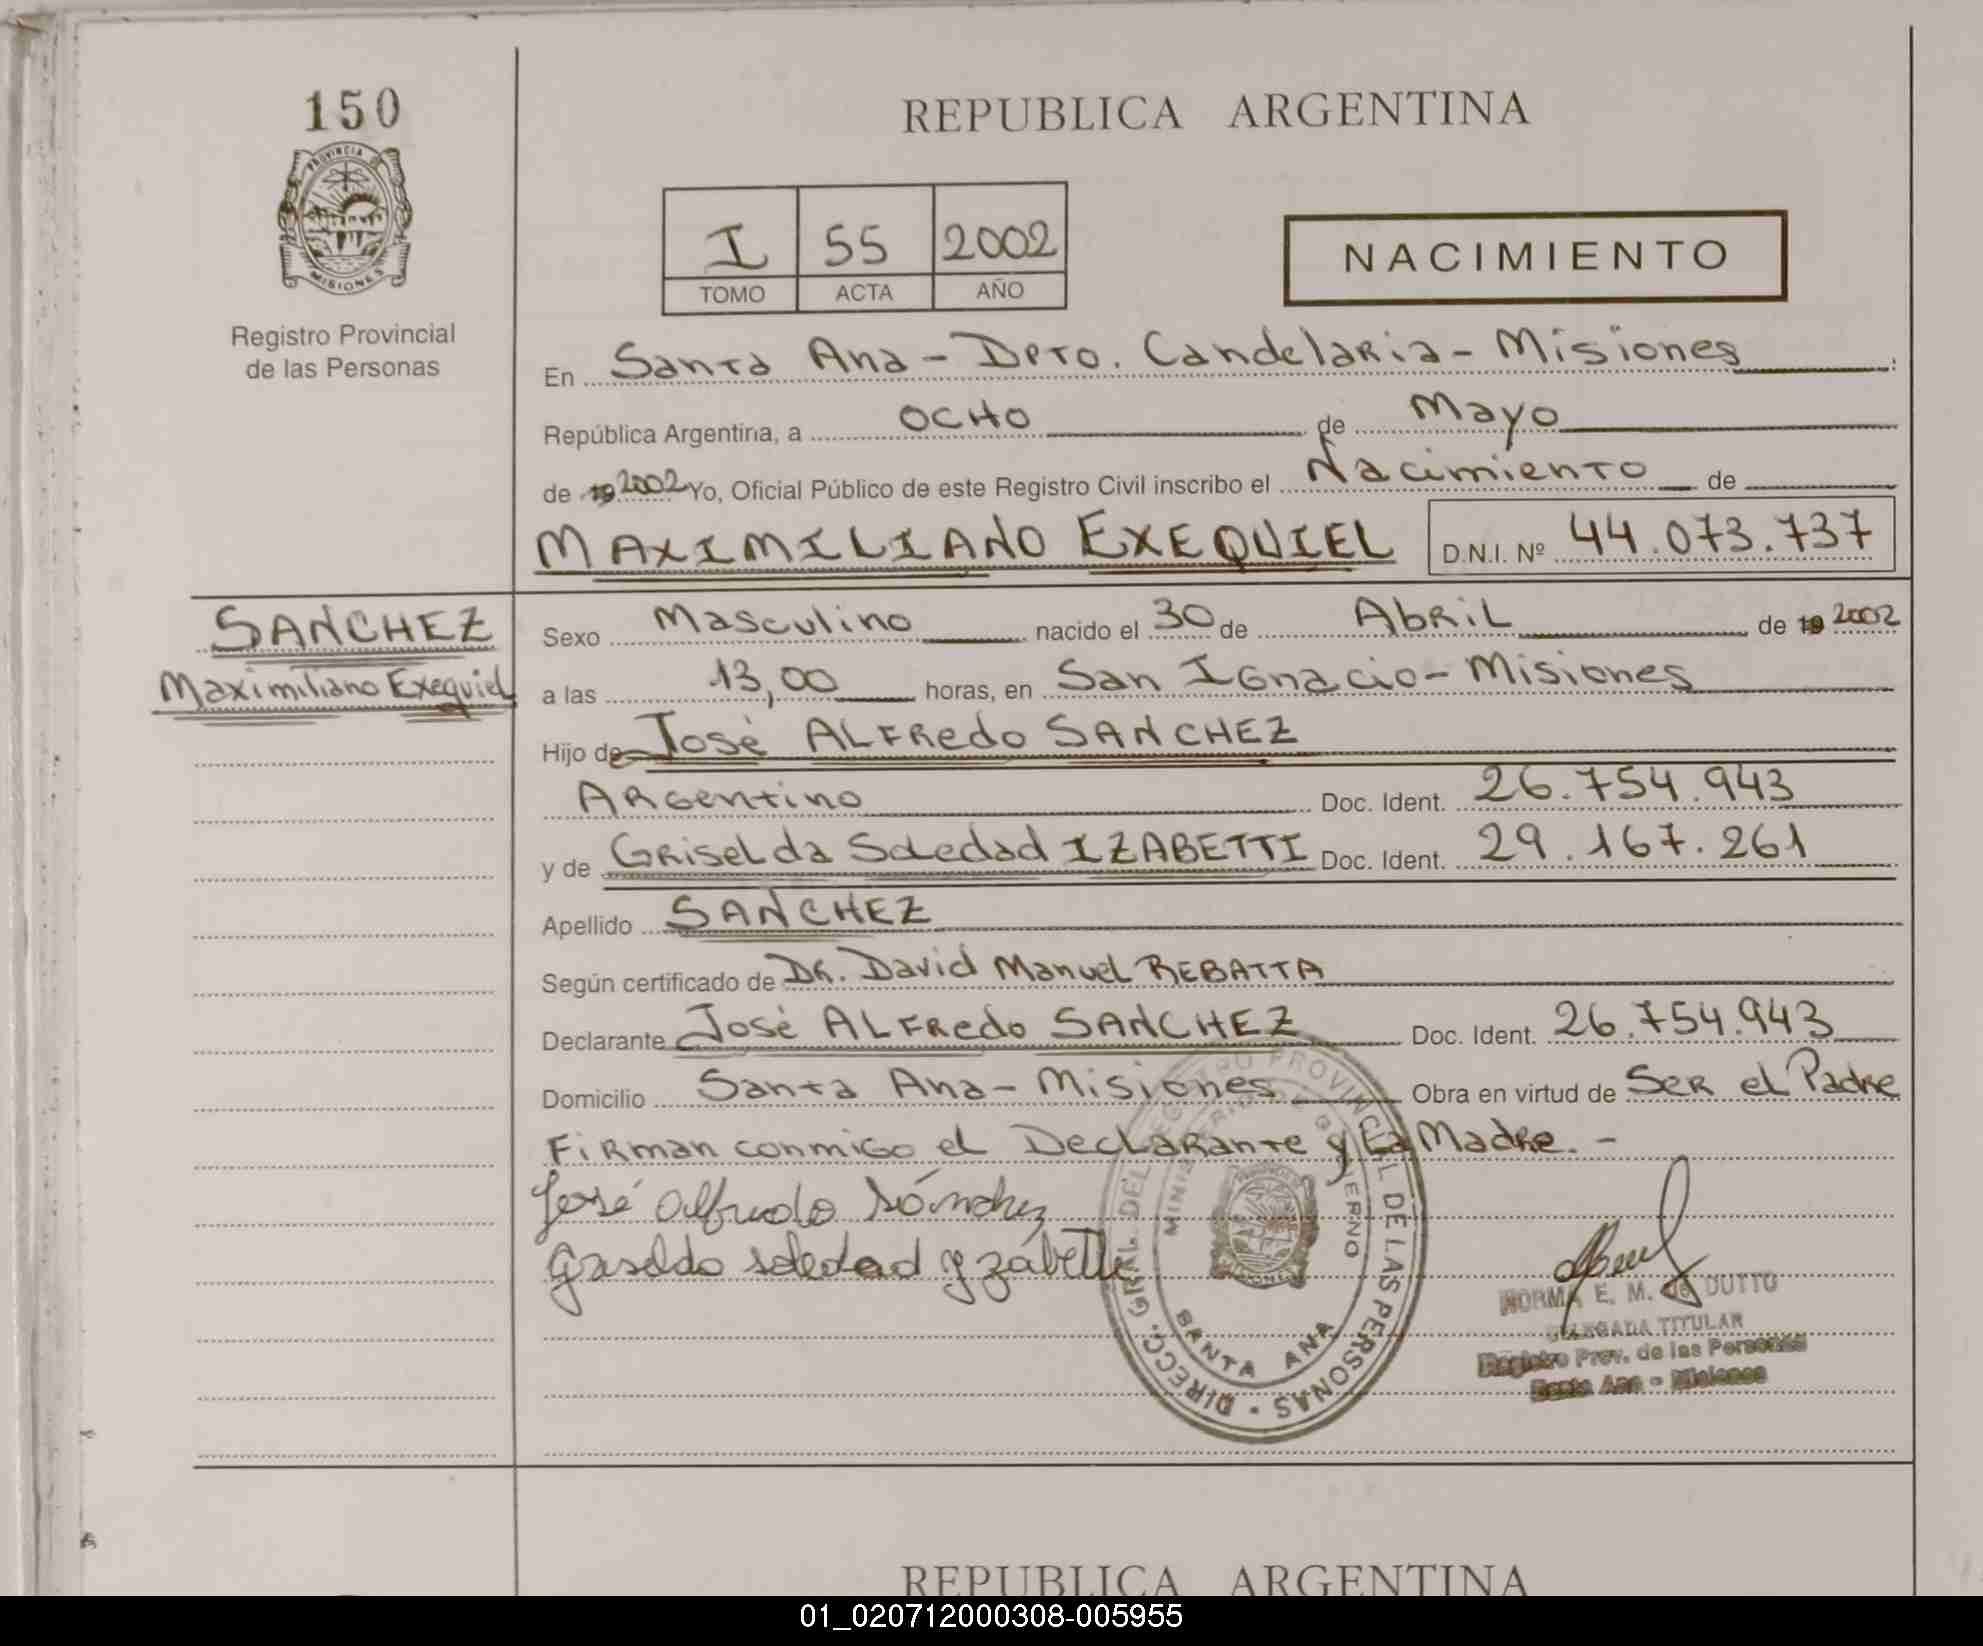 150
PROVINCIA DE
MISIONES
Registro Provincial
de las Personas
REPUBLICA ARGENTINA
I 55 2002
TOMO ACTA AÑO
NACIMIENTO
En Santa Ana - Dpto. Candelaria - Misiones
República Argentina, a OCHO de Mayo
de 19 2002 Yo, Oficial Público de este Registro Civil inscribo el Nacimiento de
MAXIMILIANO EXEQUIEL D.N.I. Nº 44.073.737
SANCHEZ
Maximiliano Exequiel
Sexo Masculino nacido el 30 de Abril de 19 2002
a las 13,00 horas, en San Ignacio - Misiones
Hijo de José Alfredo SANCHEZ
Argentino Doc. Ident. 26.754.943
y de Griselda Soledad IZABETTI Doc. Ident. 29.167.261
Apellido SANCHEZ
Según certificado de Dr. David Manuel REBATTA
Declarante José Alfredo SANCHEZ Doc. Ident. 26.754.943
Domicilio Santa Ana - Misiones Obra en virtud de Ser el Padre
Firman conmigo el Declarante y La Madre. -
José Alfredo Sánchez
Griselda Soledad Yzabetti
DIRECC. GRAL. DEL REGISTRO PROVINCIAL DE LAS PERSONAS
MINISTERIO DE GOBIERNO
SANTA ANA
NORMA E. M. de DUTTO
DELEGADA TITULAR
Registro Prov. de las Personas
Santa Ana - Misiones
REPUBLICA ARGENTINA
01_020712000308-005955